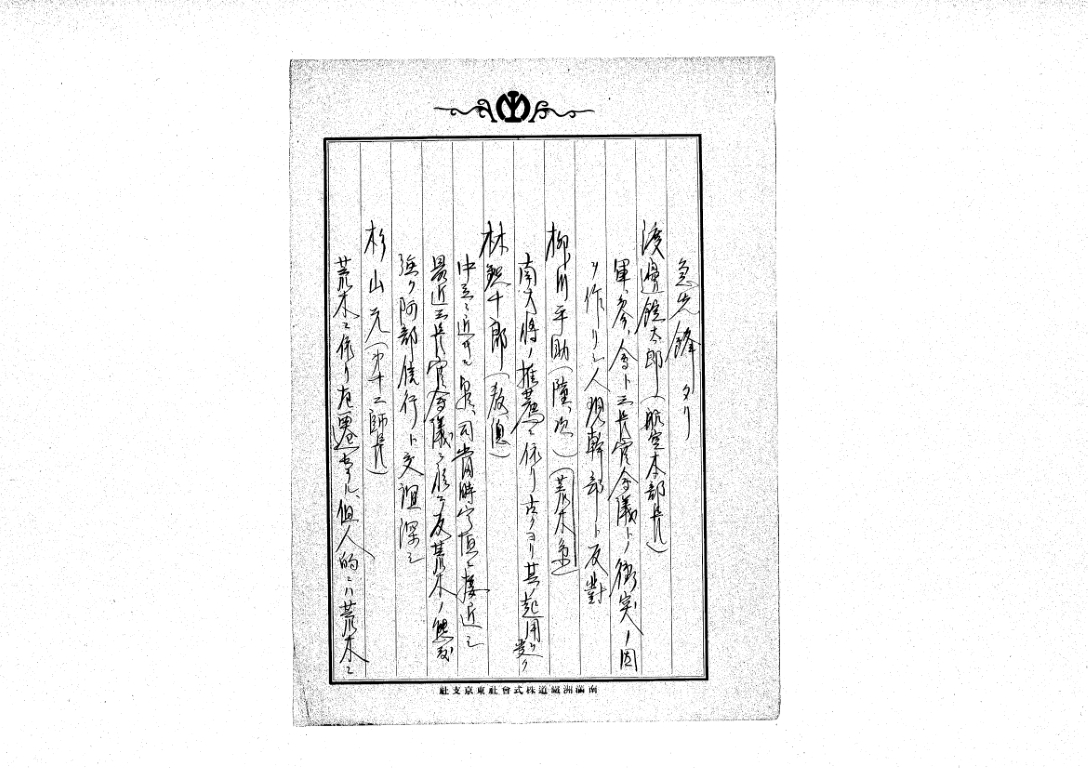 急先鋒タリ
渡邊錠太郎(航空本部長)
軍、参、会ト三長官会議トノ衝突ノ因
ヲ作リシ人現幹部ト反對
柳川平助(陸、次)(荒木系)
南大将ノ推薦ニ依リ古クヨリ其ノ起用ヲ受ク
林銑十郎(教、総)
中立ニ近キモ 司当時宇垣ニ接近シ
最近三長官会議ニ於テ反荒木ノ態度
強ク阿部信行ト交誼深シ
杉山元(第十二師長)
荒木ニ依リ左遷セラル、個人的ニハ荒木ニ
南滿洲鐵道株式會社東京支社